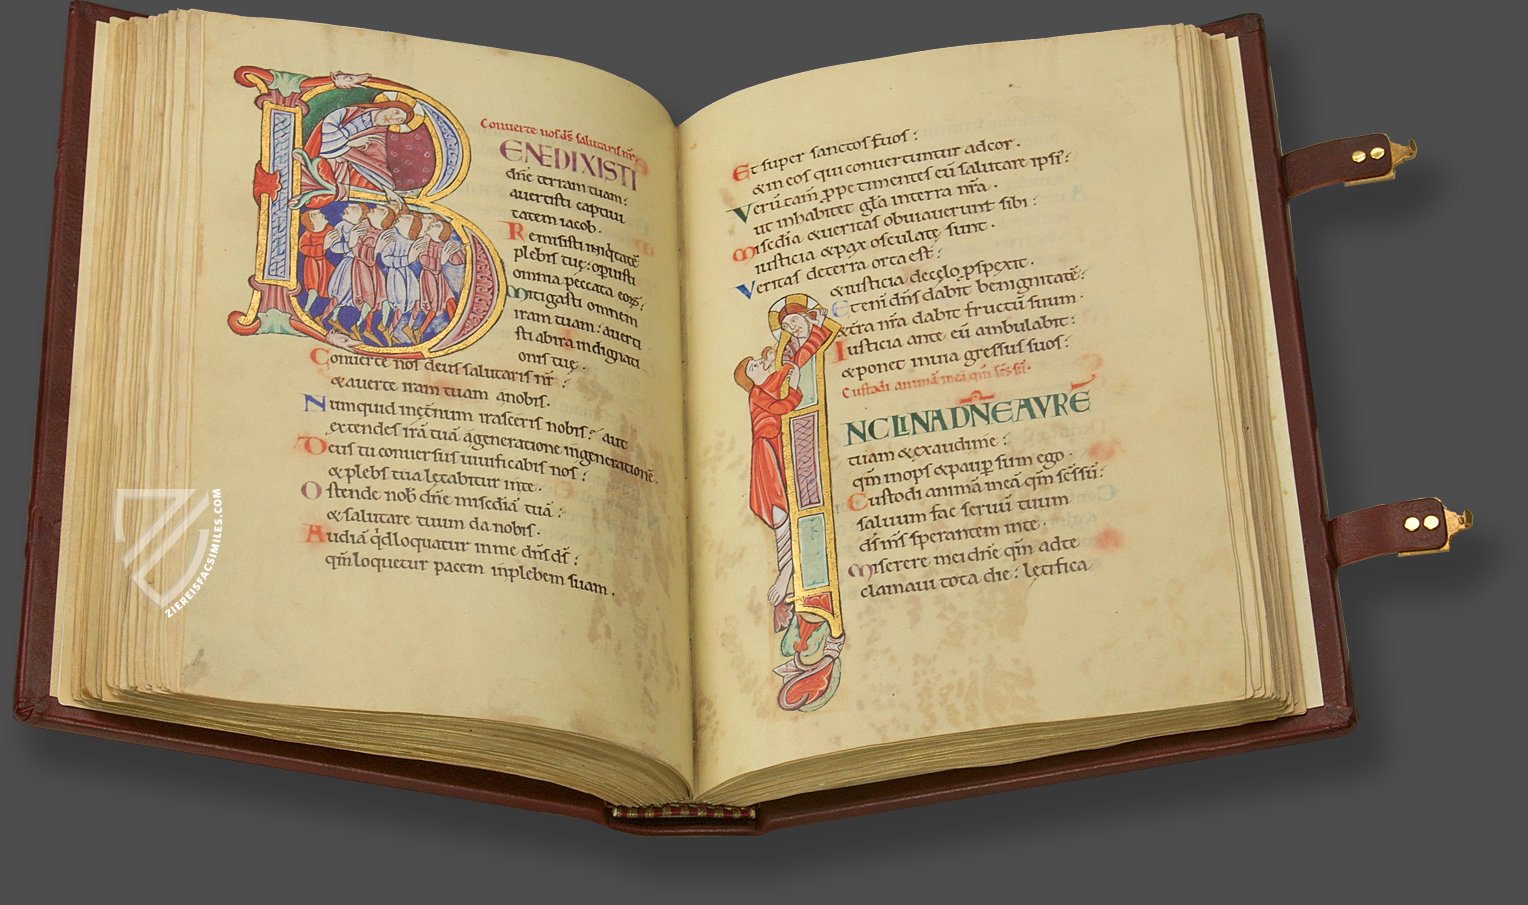 Conuerte nos ds̄ salutaris nr̄.
BENEDIXISTI
dn̄e terram tuam:
auertisti captiui
tatem iacob.
Remisisti iniq̇tatē
plebis tuę: opuisti
omnia peccata eoꝝ:
Mitigasti omnem
iram tuam: auerti
sti abira indignati
onis tuę.
Conuerte nos deus salutaris nr̄:
& auerte iram tuam anobis.
Numquid inęt̄num irasceris nobis: aut
extendes irā tuā ageneratione ingenerationē.
Deus tu conuersus uiuificabis nos:
& plebs tua lętabitur inte.
Ostende nob̄ dn̄e misc̄dia tuā:
& salutare tuum da nobis.
Audiā q̇d loquatur inme dn̄s ds̄:
qm̄ loquetur pacem inplebem suam.
ZIEREISFACSIMILES.COM
243
Et super sanctos suos:
& in eos qui conuertuntur adcor.
Verūtam̄ ꝓpe timentes eū salutare ipsi':
ut inhabitet glā interra nr̄a.
Misc̄dia & ueritas obuiauerunt sibi:
iusticia & pax osculatę sunt.
Veritas deterra orta est:
& iusticia decęlo ꝓspexit.
Eteni' dn̄s dabit benignitatē:
& tr̄a nr̄a dabit fructū suum.
Iusticia ante eū ambulabit:
& ponet inuia gressus suos:
Custodi animā meā qm̄ sc̄s sū.
INCLINA DN̄E AVRĒ
tuam & exaudi me:
qm̄ inops & paup̄ sum ego.
Custodi animā meā qm̄ sc̄s sū:
saluum fac seruū tuum
ds̄ ms̄ sperantem inte.
Miserere mei dn̄e qm̄ adte
clamaui tota die: lętifica